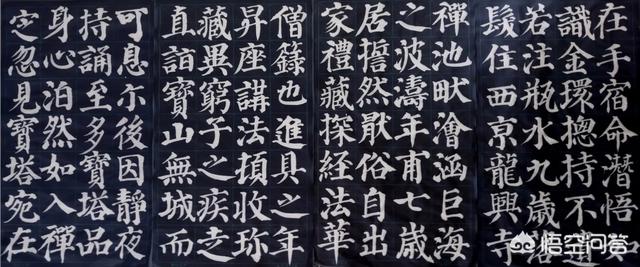 在手宿命潛悟
識金環揔持不
若注瓶水九歲落
髮住西京龍興寺
禪池畎澮涵巨海
之波濤年甫七歲
居誓然猒俗自出
家禮藏探經法華
僧籙也進具之年
昇座講法頓收珍
藏異窮子之疾走
直詣寶山無城而
可息尒後因靜夜
持誦至多寶塔品
身心泊然如入禪
定忽見寶塔宛在
悟空问答